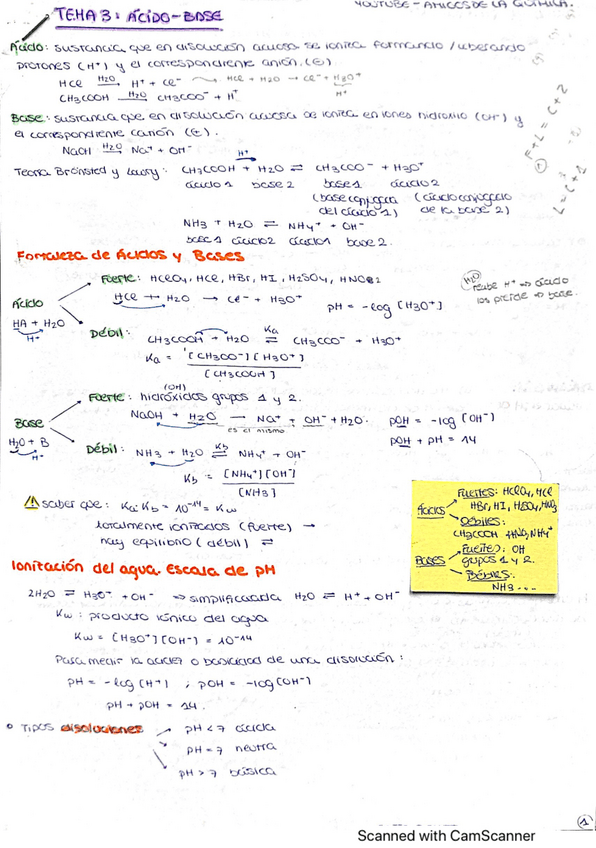 YOUTUBE - AMIGOS DE LA QUÍMICA.
TEMA 3: ÁCIDO-BASE
Ácido: sustancia que en disolución acuosa se ioniza formando/liberando
protones (H⁺) y el correspondiente anión. (⊖)
HCl —H₂O→ H⁺ + Cl⁻ HCl + H₂O → Cl⁻ + H₃O⁺
H⁺
CH₃COOH —H₂O→ CH₃COO⁻ + H⁺
Base: sustancia que en disolución acuosa se ioniza en iones hidroxilo (OH⁻) y
el correspondiente catión (⊕).
NaOH —H₂O→ Na⁺ + OH⁻
F + L = C + 2
L = C + 2
H⁺
Teoría Brönsted y Lowry: CH₃COOH + H₂O ⇌ CH₃COO⁻ + H₃O⁺
ácido 1 base 2 base 1 ácido 2
(base conjugada (ácido conjugado
del ácido 1) de la base 2)
NH₃ + H₂O ⇌ NH₄⁺ + OH⁻
base 1 ácido 2 ácido 1 base 2.
Fortaleza de Ácidos y Bases
Fuerte: HClO₄, HCl, HBr, HI, H₂SO₄, HNO₃
H₂O recibe H⁺ ⇒ ácido
los pierde ⇒ base.
HCl + H₂O → Cl⁻ + H₃O⁺ pH = -log [H₃O⁺]
Ácido
HA + H₂O
H⁺
Débil: CH₃COOH + H₂O ⇌ Ka CH₃COO⁻ + H₃O⁺
Ka = [CH₃COO⁻][H₃O⁺]
[CH₃COOH]
(OH)
Fuerte: hidróxidos grupos 1 y 2.
NaOH + H₂O → Na⁺ + OH⁻ + H₂O. pOH = -log [OH⁻]
es el mismo
Base pOH + pH = 14
H₂O + B
H⁺
Débil: NH₃ + H₂O ⇌ Kb NH₄⁺ + OH⁻
Kb = [NH₄⁺][OH⁻]
[NH₃]
⚠ saber que: Ka·Kb = 10⁻¹⁴ = Kw
totalmente ionizados (fuerte) →
hay equilibrio (débil) ⇌
ÁCIDOS
Fuertes: HClO₄, HCl
HBr, HI, H₂SO₄, HNO₃
Débiles:
CH₃COOH, HNO₂, NH₄⁺
BASES
Fuerte): OH
grupos 1 y 2.
Débiles:
NH₃ ....
Ionización del agua. Escala de pH
2H₂O ⇌ H₃O⁺ + OH⁻ ⇒ simplificada H₂O ⇌ H⁺ + OH⁻
Kw: producto iónico del agua
Kw = [H₃O⁺][OH⁻] = 10⁻¹⁴
Para medir la acidez o basicidad de una disolución:
pH = -log (H⁺) ; pOH = -log (OH⁻)
pH + pOH = 14.
• Tipos disoluciones → pH < 7 ácida
pH = 7 neutra
pH > 7 básica
1
Scanned with CamScanner